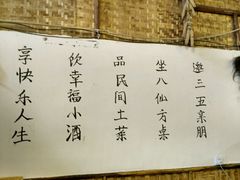 邀三五亲朋
坐八仙方桌
品民间土菜
饮幸福小酒
享快乐人生